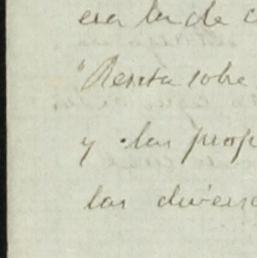 era la de c
"Renta sobre
y las prop
las divers